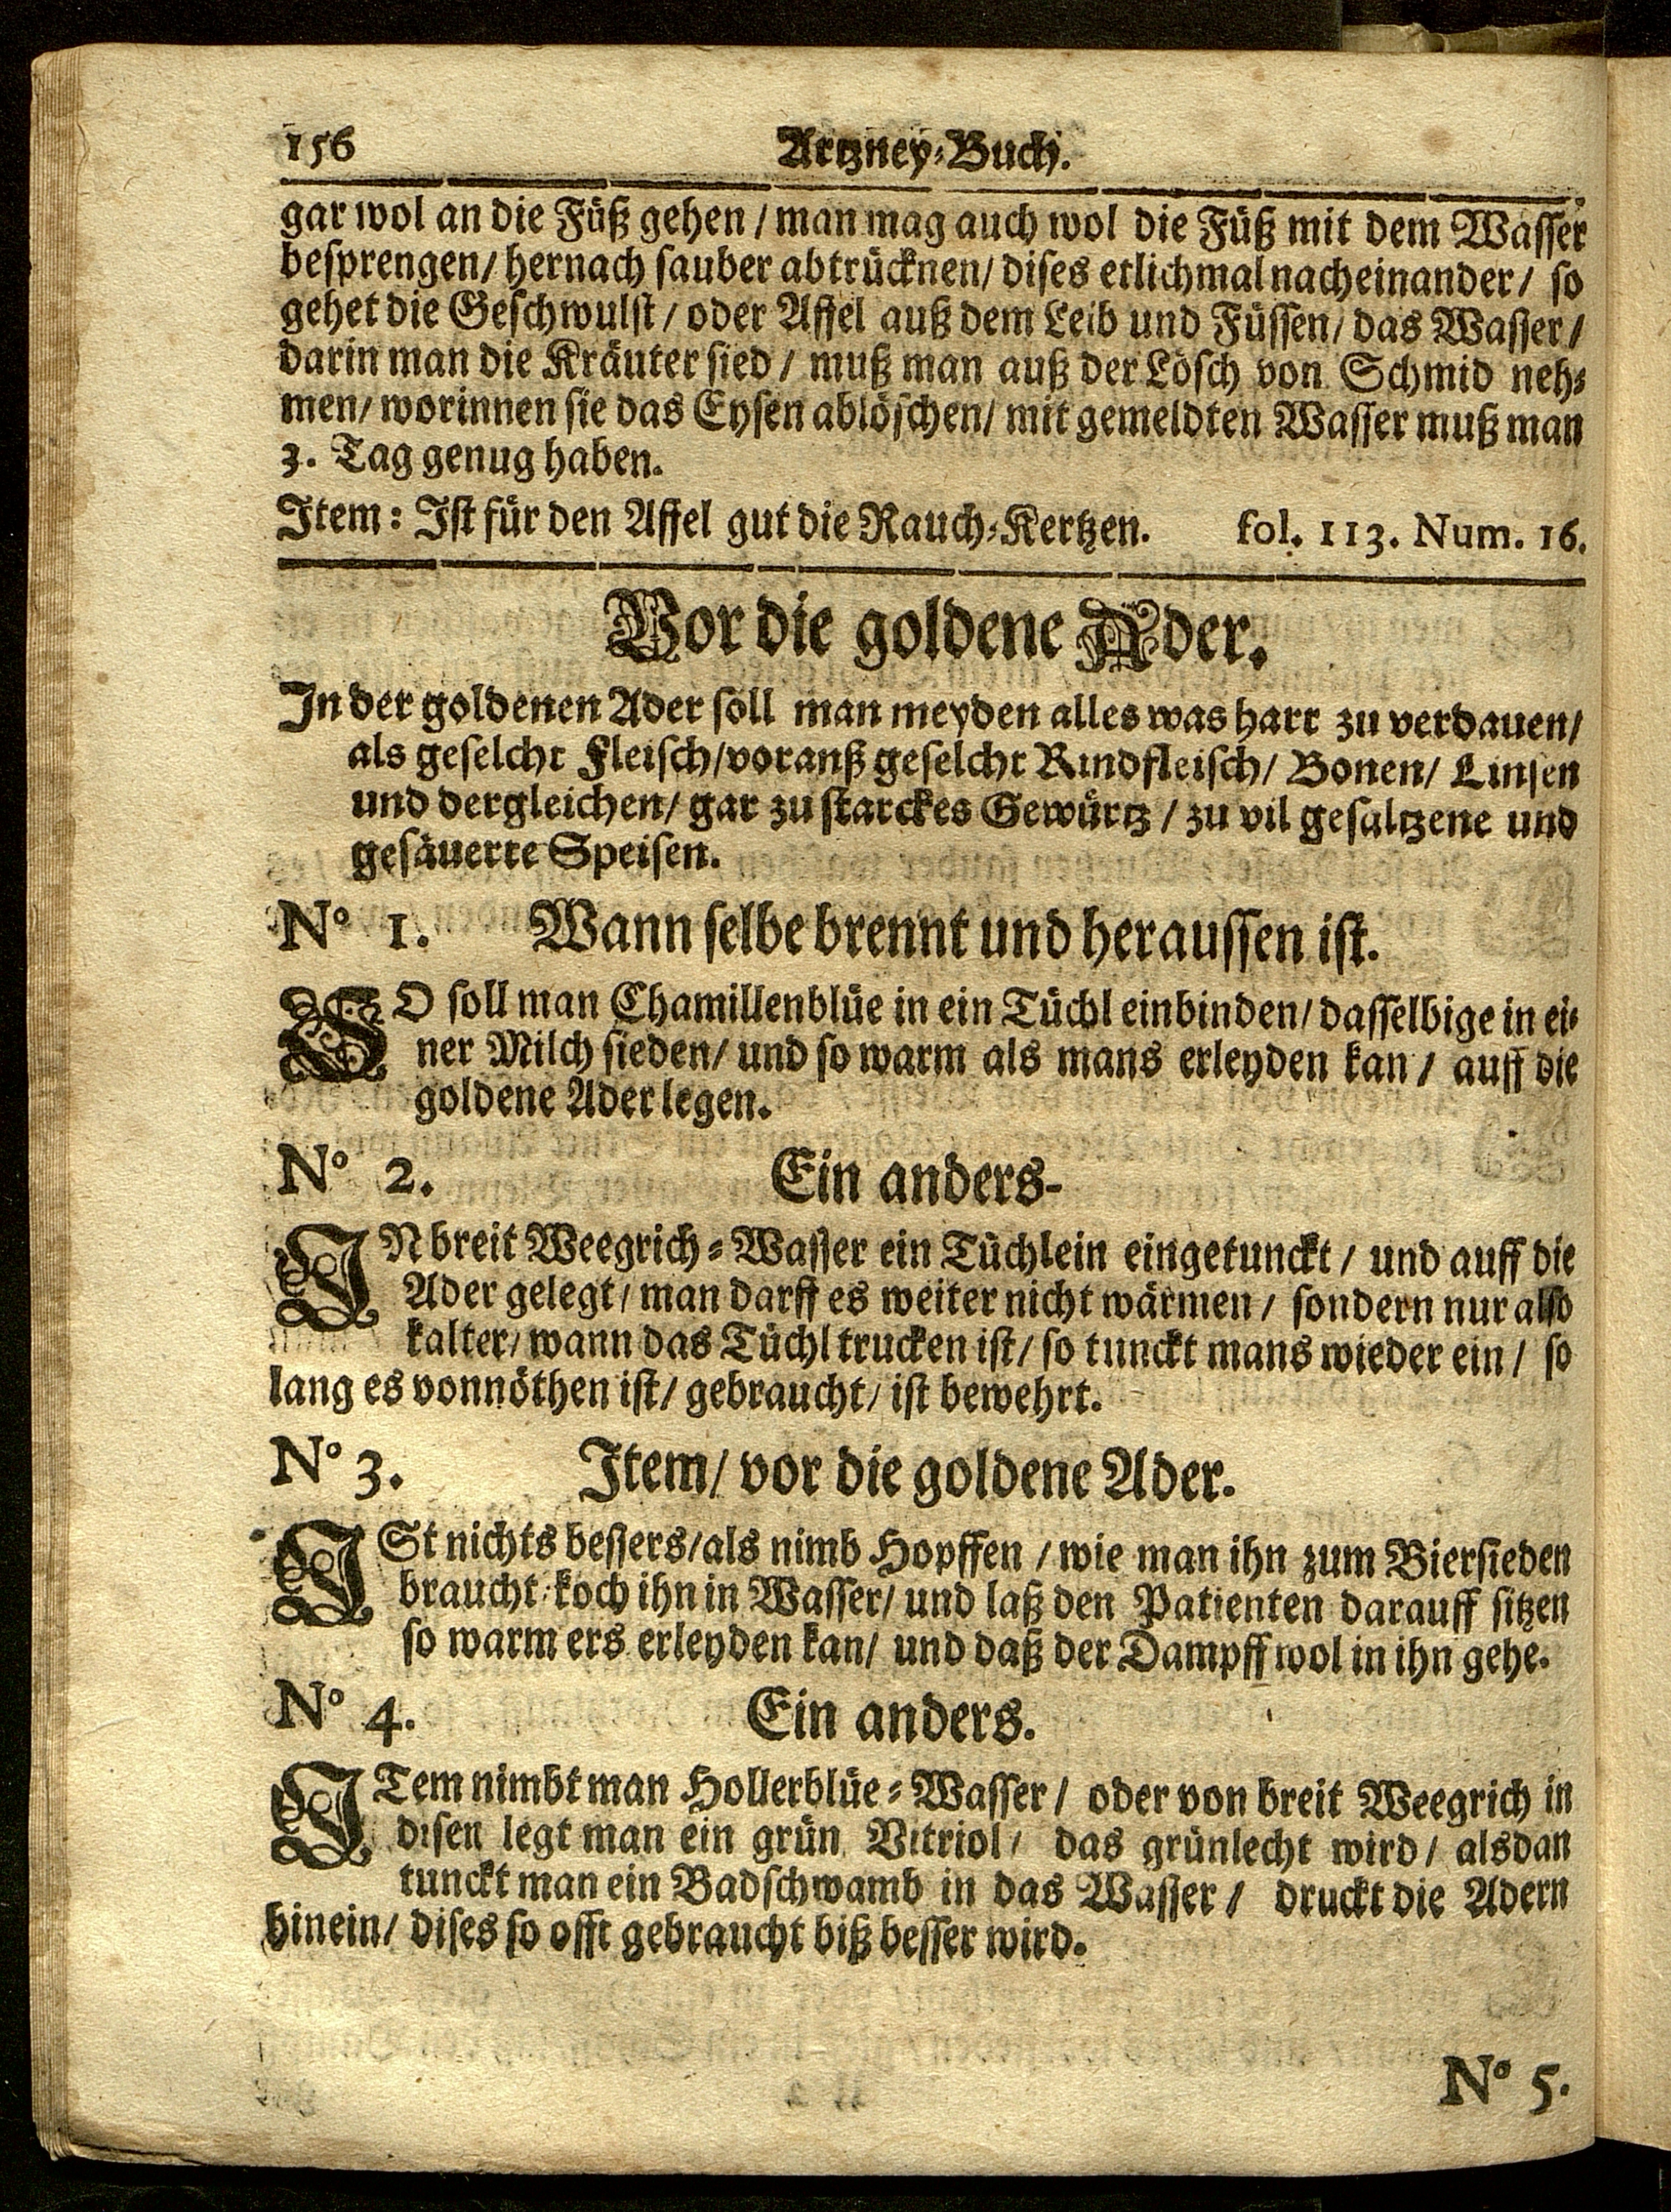 156 Artzney-Buch.
gar wol an die Füß gehen / man mag auch wol die Füß mit dem Wasser
besprengen / hernach sauber abtrücknen / dises etlichmal nacheinander / so
gehet die Geschwulst / oder Affel auß dem Leib und Füssen / das Wasser /
darin man die Kräuter sied / muß man auß der Lösch von Schmid neh-
men / worinnen sie das Eysen ablöschen / mit gemeldten Wasser muß man
3. Tag genug haben.
Item: Ist für den Affel gut die Rauch-Kertzen. fol. 113. Num. 16.
Vor die goldene Ader.
In der goldenen Ader soll man meyden alles was hart zu verdauen /
als geselcht Fleisch / voranß geselcht Rindfleisch / Bonen / Linsen
und dergleichen / gar zu starckes Gewürtz / zu vil gesaltzene und
gesäuerte Speisen.
N° 1. Wann selbe brennt und heraussen ist.
SO soll man Chamillenblüe in ein Tüchl einbinden / dasselbige in ei-
ner Milch sieden / und so warm als mans erleyden kan / auff die
goldene Ader legen.
N° 2. Ein anders-
IN breit Weegrich-Wasser ein Tüchlein eingetunckt / und auff die
Ader gelegt / man darff es weiter nicht wärmen / sondern nur also
kalter / wann das Tüchl trucken ist / so tunckt mans wieder ein / so
lang es vonnöthen ist / gebraucht / ist bewehrt.
N° 3. Item / vor die goldene Ader.
ISt nichts bessers / als nimb Hopffen / wie man ihn zum Biersieden
braucht / koch ihn in Wasser / und laß den Patienten darauff sitzen
so warm ers erleyden kan / und daß der Dampff wol in ihn gehe.
N° 4. Ein anders.
ITem nimbt man Hollerblüe-Wasser / oder von breit Weegrich in
disen legt man ein grün Vitriol / das grünlecht wird / alsdan
tunckt man ein Badschwamb in das Wasser / druckt die Adern
hinein / dises so offt gebraucht biß besser wird.
N° 5.